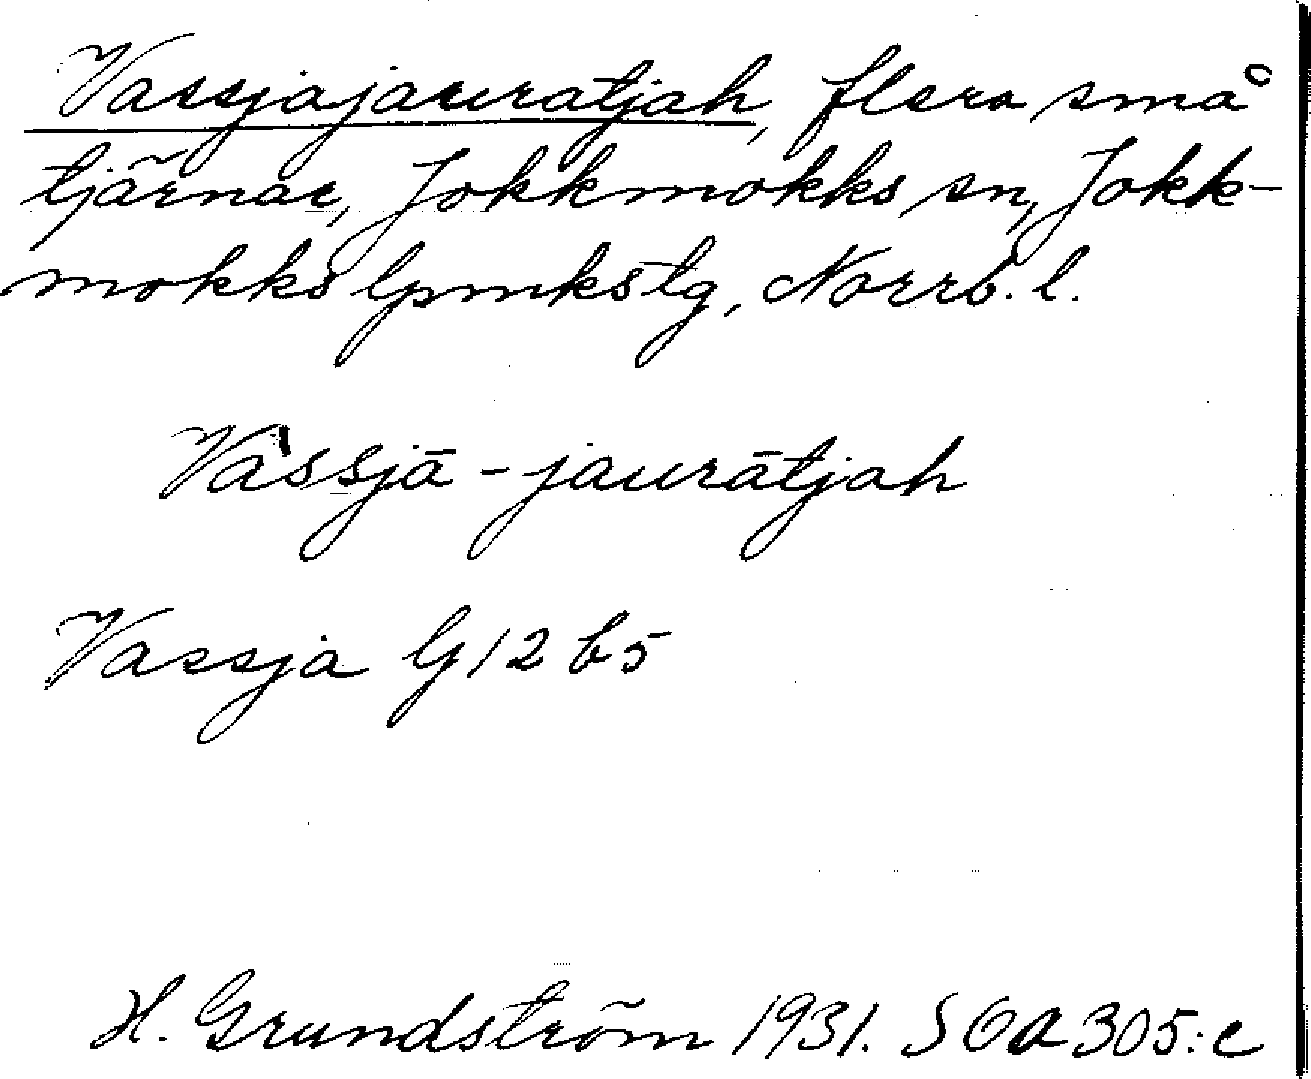 Vassjajauratjah, flera små
tjärnar, Jokkmokks sn, Jokk-
mokks lpmkstg, Norrb. l.
Vàssjā - jaurātjah
Vassja G 12 b5
H. Grundström 1931. SOA 305:c